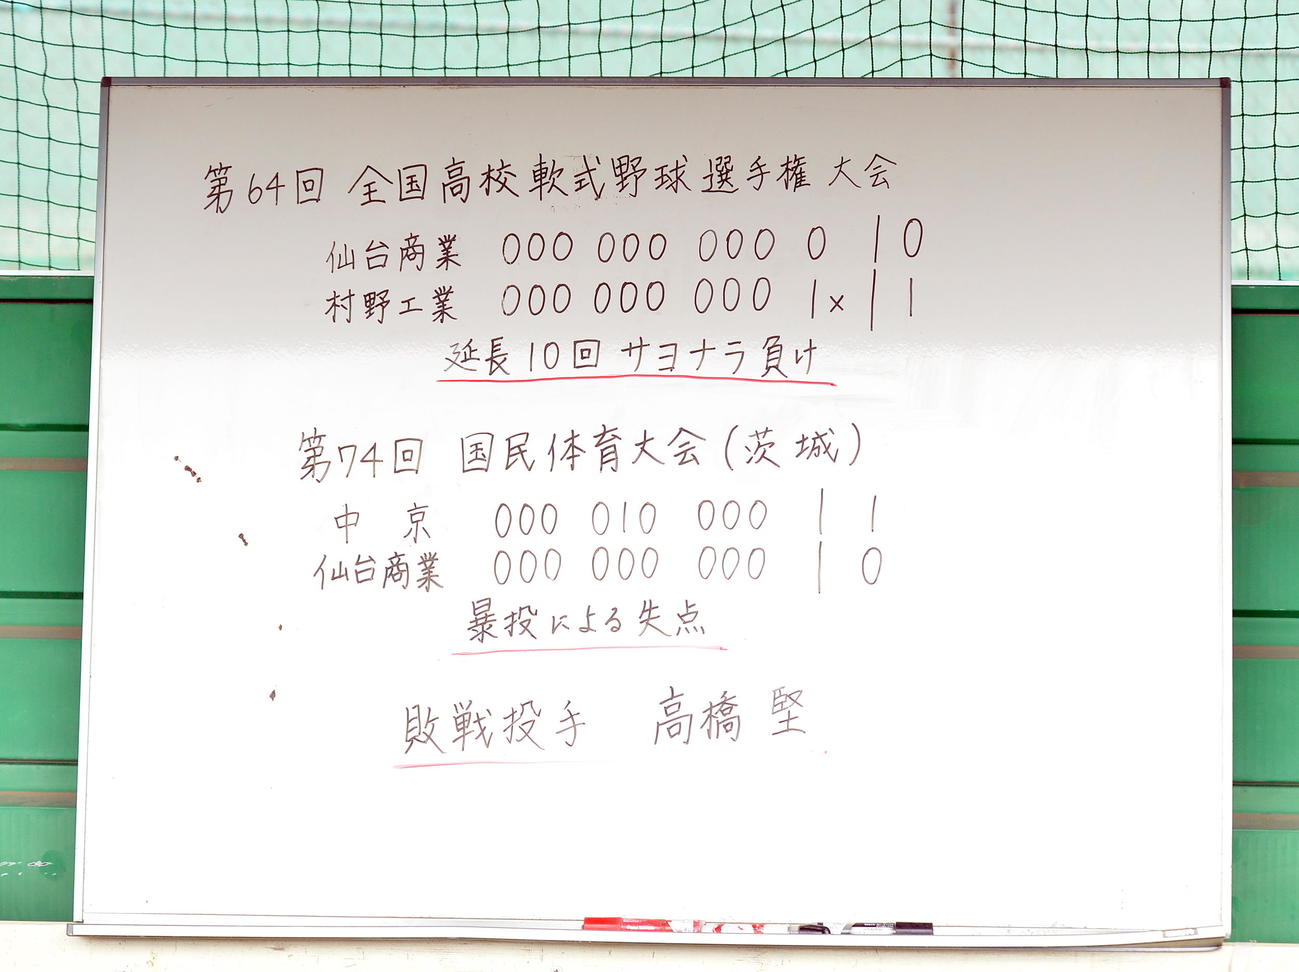 第64回 全国高校軟式野球選手権 大会
仙台商業 000 000 000 0 | 0
村野工業 000 000 000 1x | 1
延長10回 サヨナラ負け
第74回 国民体育大会(茨城)
中 京 000 010 000 | 1
仙台商業 000 000 000 | 0
暴投による失点
敗戦投手 高橋 堅